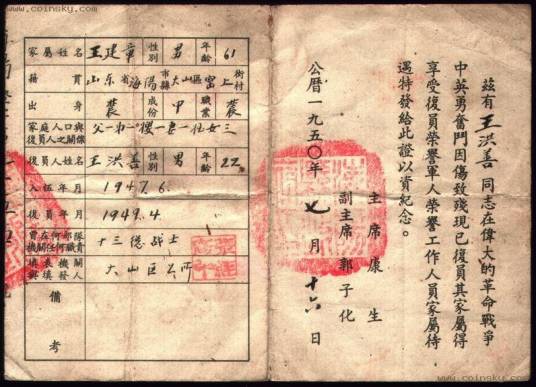 www.coinsky.com
家屬姓名 王建章 性別 男 年齡 61
籍貫 山东省海陽市縣大山區窑上街村
出身 農 成份 中 職業 農
家庭人口與復員人之關係 父一弟一
復員人姓名 王洪善 性別 男 年齡 22
入伍年月 1947.6.
復員年月 1949.4.
曾在何部隊機關任何職責 十三团战士
填表機關與填發人 大山区公所
備考
茲有王洪善同志在偉大的革命戰爭
中英勇奮鬥因傷致殘現已復員其家屬得
享受復員榮譽軍人榮譽工作人員家屬待
遇特發給此證以資紀念。
主席康生
副主席郭子化
公曆一九五〇年七月十六日
www.coinsky.com